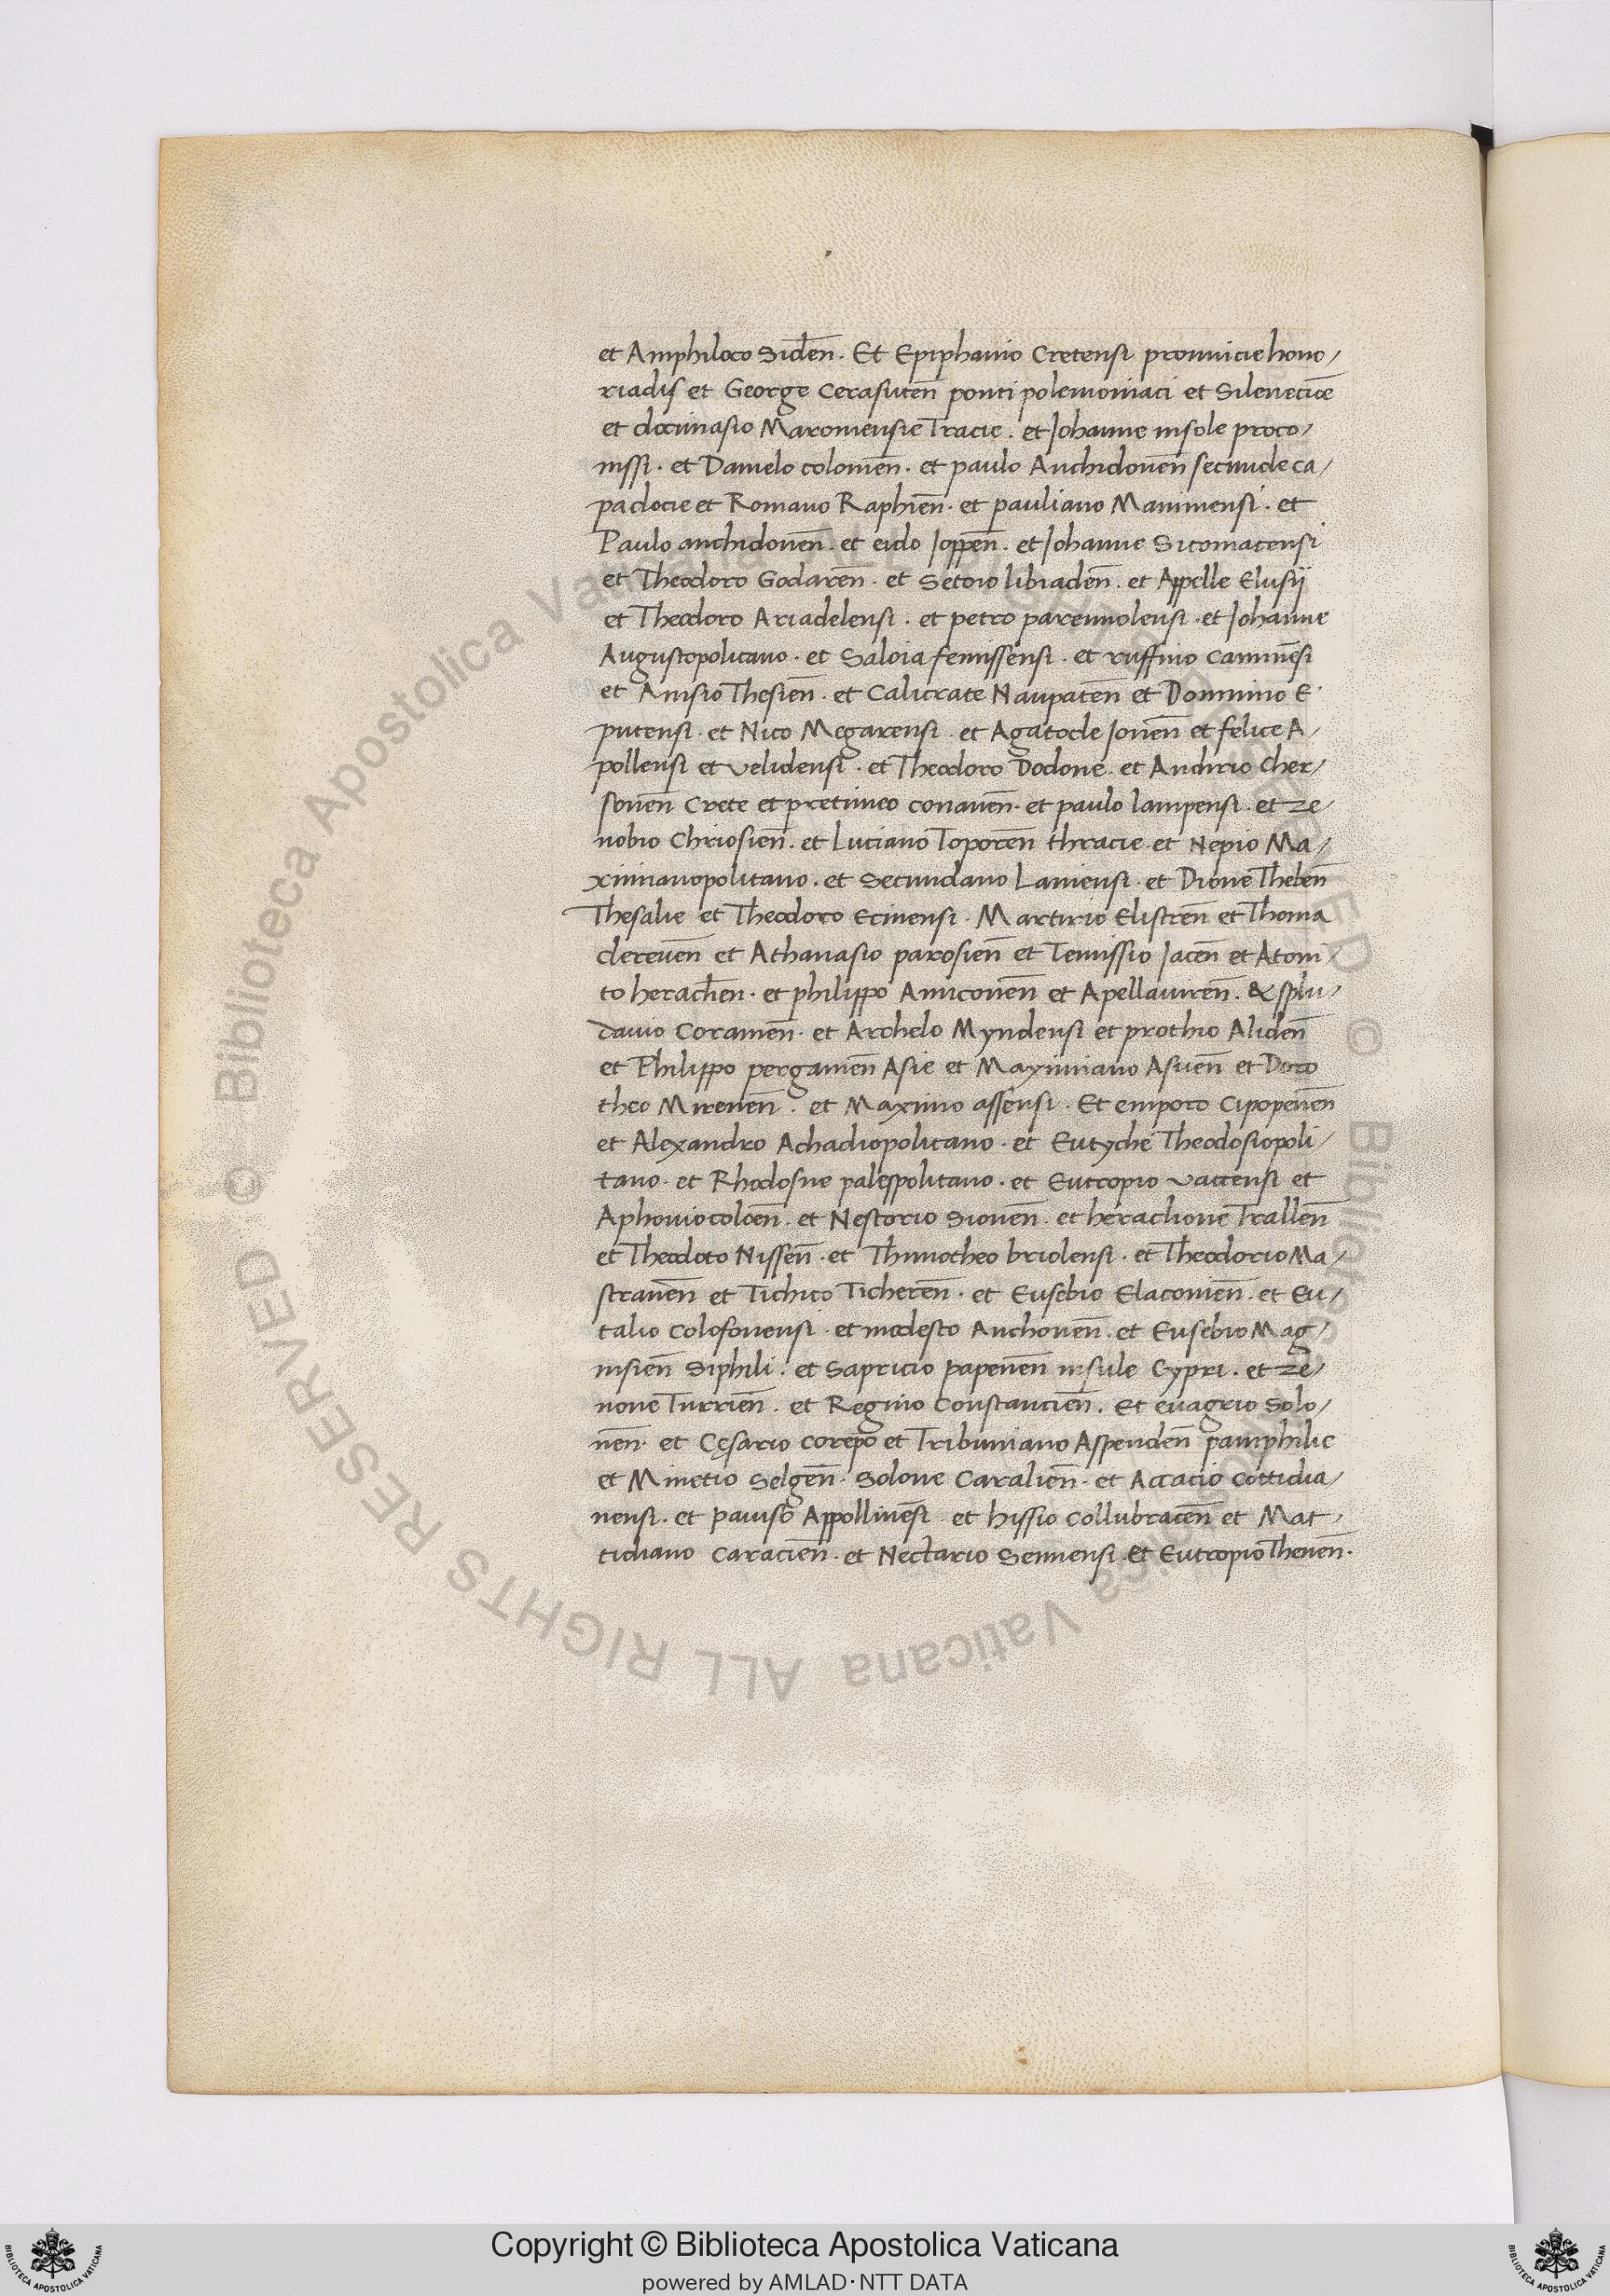 et Amphiloco Siden̄. Et Epiphanio Cretensi prouincie hono/
riadis et George Cerasuten̄ ponti polemoniaci et Sileneticie
et docimasio Maroniensie Tracie. et Johanne insole proco/
nissi. et Danielo colonien̄. et paulo Anchidonen̄ secunde ca/
padocie et Romano Raphien̄. et pauliano Maniniensi. et
Paulo anchidonen̄. et eido Joppen̄. et Johanne Sicomacensi
et Theodoro Godaren̄. et Setoio libiaden̄. et Appelle Elusij
et Theodoro Ariadelensi. et petro parennolensi. et Johanne
Augustopolitano. et Saloia femissensi. et ruffino Caminēsi
et Anisio Thesien̄. et Calicrate Naupaten̄ et Domnino E
putensi. et Nico Megarensi. et Agatocle Jonen̄ et felice A/
pollensi et velidensi. et Theodoro Dodone. et Andirio Cher/
sonen̄ Crete et pretimeo conanen̄. et paulo lampensi. et ze/
nobio Chriosien̄. et Luciano Toporen̄ thracie. et Nepio Ma/
ximianopolitano. et Secundano Laniensi. et Dione Theben̄
Thesalie et Theodoro Ecinensi. Martirio Elistren̄ et Thoma
dereuen̄ et Athanasio parosien̄ et Temissio Jacen̄ et Atoni/
to heraclien̄. et philippo Amiconen̄ et Apellauiren̄. & splu/
danio Coramen̄. et Archelo Myndensi et prothio Aliden̄
et Philippo pergamen̄ Asie et Mayimiano Asuen̄ et Doro
theo Mirenen̄. et Maximo assensi. Et emporo Cipopenen̄
et Alexandro Achadiopolitano. et Eutyche Theodosiopoli/
tano. et Rhodosne palespolitano. et Eutropio vaccensi et
Aphoniocoloen̄. et Nestorio Sionen̄. et heraclione Trallen̄
et Theodoto Nissen̄. et Thimotheo briolensi. et Theodorio Ma/
strauen̄ et Tichico Ticheren̄. et Eusebio Elaconien̄. et Eu/
talio Colofonensi. et modesto Anchonen̄. et Eusebio Mag/
nisien̄ Siphili. et Sapricio papenen̄ insule Cypri. et ze/
none Turrien̄. et Regino Constancien̄. Et euagrio Solo/
nen̄. et Cęsario corepo et Tribuniano Aspenden̄ pamphilie
et Minetio Selgen̄. Solone Caralien̄. et Accacio cottidia/
nensi. et pauiso Appollinēsi et hissio Collubracen̄ et Mat/
tidiano Caracien̄. et Nectario Sennensi. Et Eutropio Thenen̄.
© Biblioteca Apostolica Vaticana ALL RIGHTS RESERVED
© Biblioteca Apostolica Vaticana ALL RIGHTS RESERVED
Copyright © Biblioteca Apostolica Vaticana
powered by AMLAD·NTT DATA
BIBLIOTECA APOSTOLICA VATICANA
BIBLIOTECA APOSTOLICA VATICANA